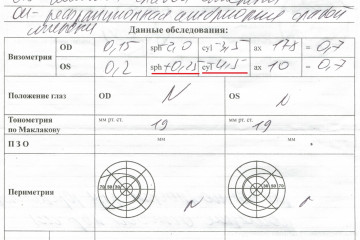 OU- рефракционная амблиопия слабой
степени
Данные обследования:
Визометрия OD 0,15 sph -2,0 cyl -3,5 ax 178 = 0,7
OS 0,2 sph +0,25 cyl -4,5 ax 10 = 0,7
Положение глаз OD N OS N
Тонометрия по Маклакову мм рт. ст. 19 мм рт. ст. 19
П З О мм мм
Периметрия N